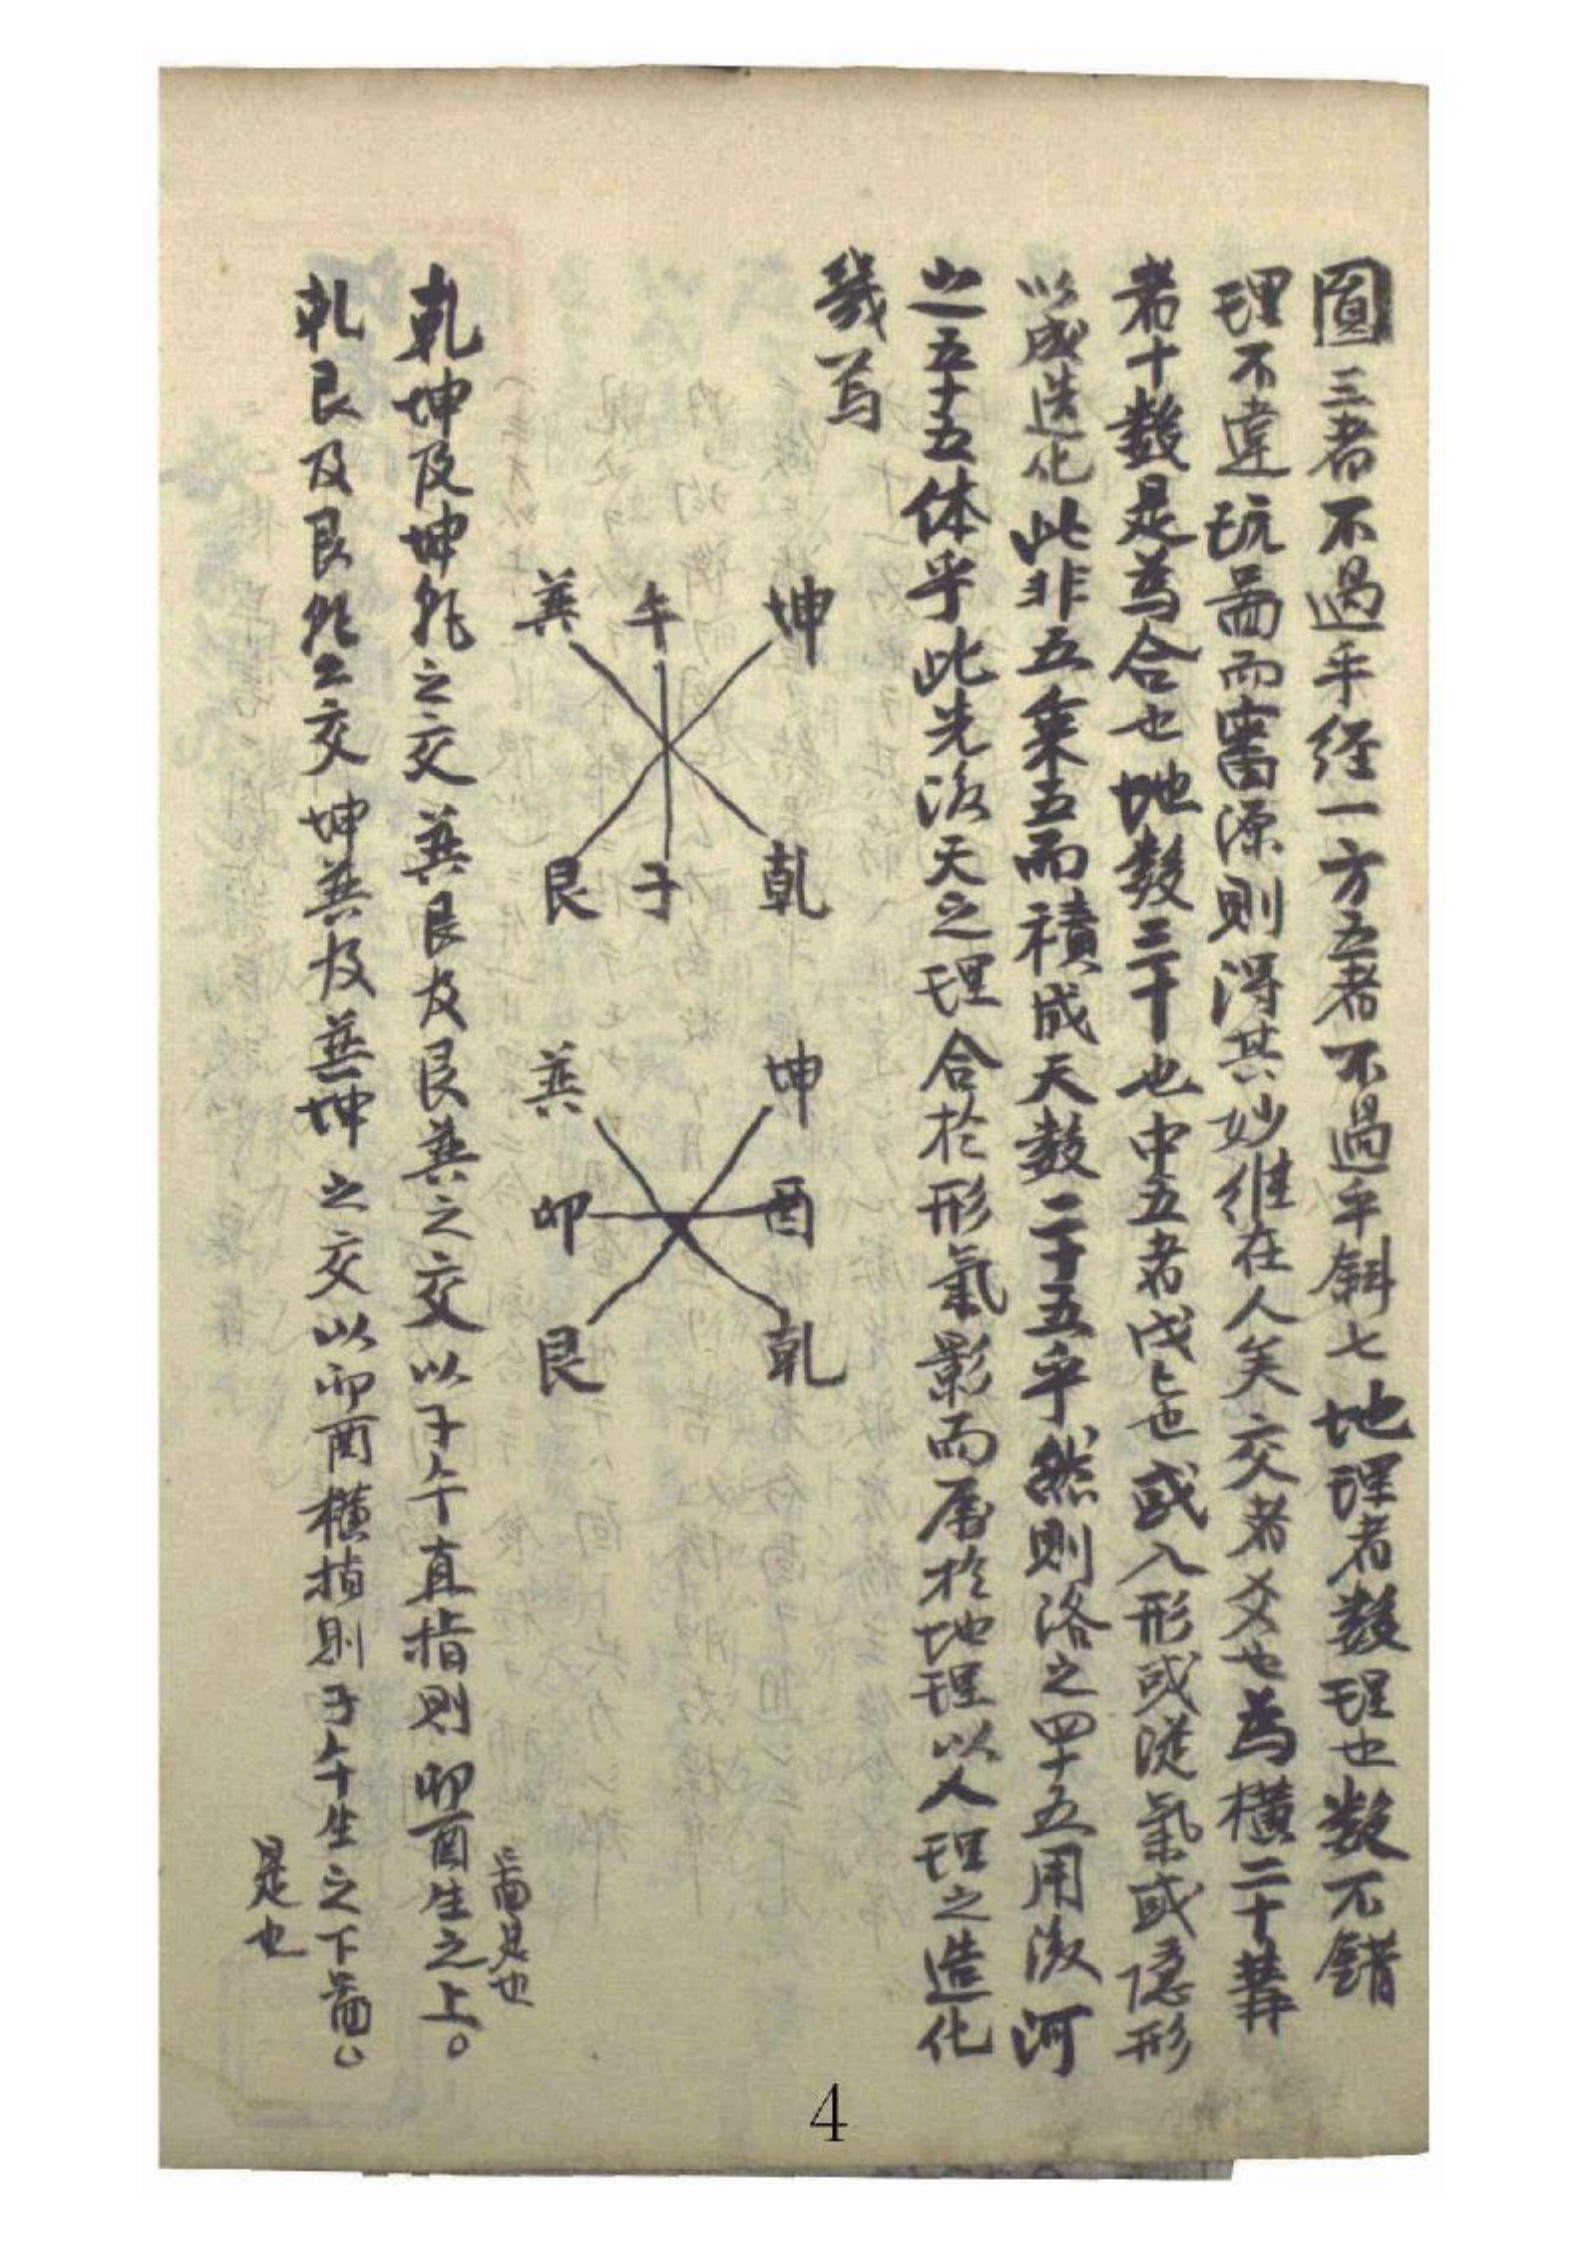 圓三者不過乎経一方五者不過乎斜七地理者数理也数不錯
理不違玩啚而審源則得其妙維在人矣交者爻也為横二十
者十数是為合也地数三十也中五者戊己也或入形或従氣或隠形
以成造化此非五象五而積成天数二十五乎然則洛之四十五用後河
之五十五体乎此先後天之理合於形氣影而層於地理以人理之造化
幾焉
巽午坤
艮子乾
巽坤
卯酉
艮乾
乾坤及坤乾之交巽艮及艮巽之交以子午直指則卯酉生之上。
啚是也
乾艮及艮乾之交坤巽及巽坤之交以卯酉横指則子午生之下啚
是也
4